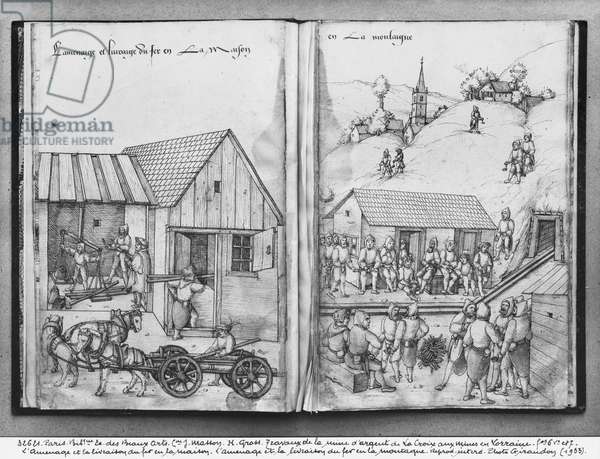 Lamenaige et livraige du fer en La Maison
en La montaigne
bridgeman
images
CULTURE HISTORY
bridgeman
images
CULTURE HISTORY
32621. Paris. Bibl. Ec. des Beaux Arts. (J. Masson. H. Gross. Travaux de la mine d'argent de La Croix aux Mines en Lorraine.
L'amenage et la livraison du fer en la maison. L'amenage et la livraison du fer en la montagne. Photo Giraudon (1933).